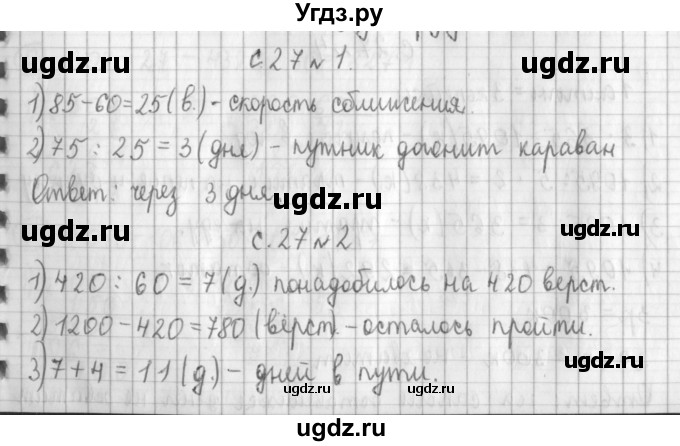 Угдз.ру
ugdz.ru ugdz.ru
с.27 № 1.
1) 85-60=25(в.)- скорость сближения.
ugdz.ru ugdz.ru
2) 75 : 25 = 3 (дня) - путник догонит караван
Ответ: через 3 дня.
ugdz.ru
ugdz.ru ugdz.ru
с.27 № 2.
1) 420 : 60 = 7 (д.) понадобилось на 420 верст.
ugdz.ru ugdz.ru
2) 1200-420=780 (верст).-осталось пройти.
ugdz.ru
3) 7+4 = 11 (д.) - дней в пути.
ugdz.ru ugdz.ru
ugdz.ru